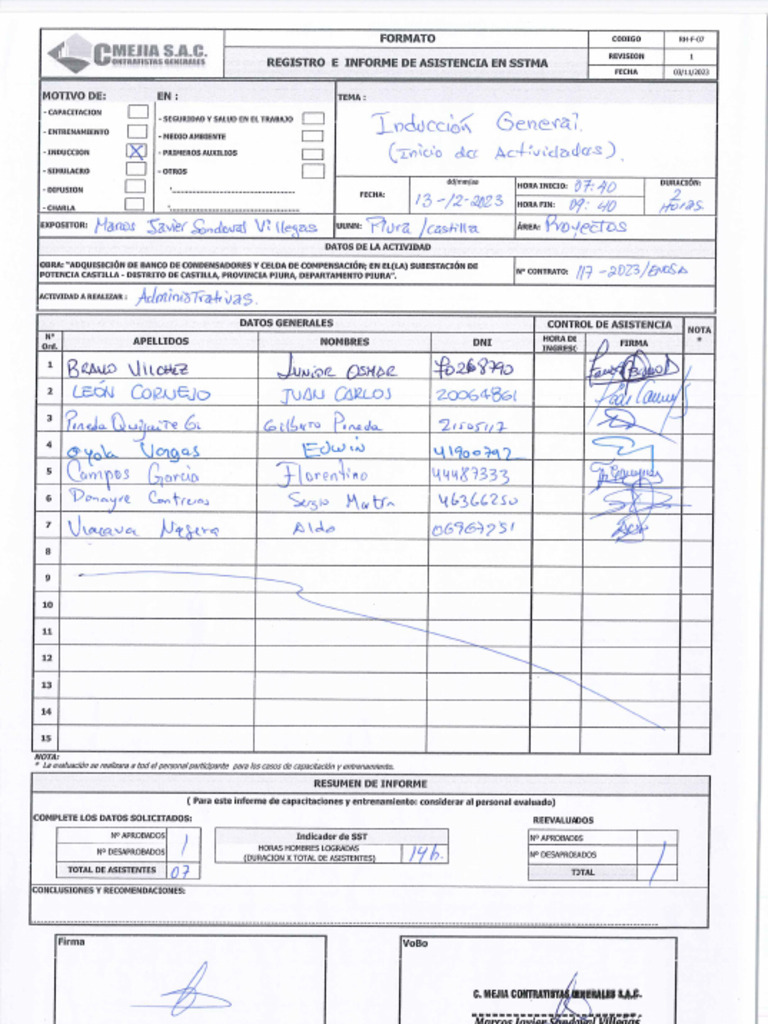 CMEJIA S.A.C.
CONTRATISTAS GENERALES
FORMATO
REGISTRO E INFORME DE ASISTENCIA EN SSTMA
CODIGO RH-F-07
REVISION 1
FECHA 03/11/2023
MOTIVO DE:
- CAPACITACION
- ENTRENAMIENTO
- INDUCCION X
- SIMULACRO
- DIFUSION
- CHARLA
EN :
- SEGURIDAD Y SALUD EN EL TRABAJO
- MEDIO AMBIENTE
- PRIMEROS AUXILIOS
- OTROS
TEMA :
Inducción General.
(Inicio de Actividades).
FECHA:
dd/mm/aa
13-12-2023
HORA INICIO: 07:40
HORA FIN: 09:40
DURACIÓN:
2 Horas.
EXPOSITOR: Marcos Javier Sandoval Villegas
Piura /castilla
ÁREA: Proyectos
DATOS DE LA ACTIVIDAD
OBRA: "ADQUISICIÓN DE BANCO DE CONDENSADORES Y CELDA DE COMPENSACIÓN; EN EL(LA) SUBESTACIÓN DE
POTENCIA CASTILLA - DISTRITO DE CASTILLA, PROVINCIA PIURA, DEPARTAMENTO PIURA".
Nº CONTRATO: 117-2023/ENOSA
ACTIVIDAD A REALIZAR : Administrativas.
DATOS GENERALES
CONTROL DE ASISTENCIA
NOTA *
Nº Ord. APELLIDOS NOMBRES DNI HORA DE INGRESO FIRMA
1 BRAVO VILCHEZ JUNIOR OSMAR 70268790
2 LEÓN CORNEJO JUAN CARLOS 20064861
3 Pineda Gilberto Pineda 21505117
4 Oyola Vargas Edwin 41900792
5 Campos Garcia Florentino 44487333
6 Donayre Contreras Sergio Martin 46366250
7 Viacava Najera Aldo 06967251
8
9
10
11
12
13
14
15
NOTA:
* La evaluación se realizara a tod el personal participante para los casos de capacitación y entrenamiento.
RESUMEN DE INFORME
( Para este informe de capacitaciones y entrenamiento: considerar al personal evaluado)
COMPLETE LOS DATOS SOLICITADOS:
Nº APROBADOS
Nº DESAPROBADOS
TOTAL DE ASISTENTES 07
Indicador de SST
HORAS HOMBRES LOGRADAS
(DURACION X TOTAL DE ASISTENTES)
14h.
REEVALUADOS
Nº APROBADOS
Nº DESAPROBADOS
TOTAL
CONCLUSIONES Y RECOMENDACIONES:
Firma
VoBo
C. MEJIA CONTRATISTAS GENERALES S.A.C.
Marcos Javier Sandoval Villegas